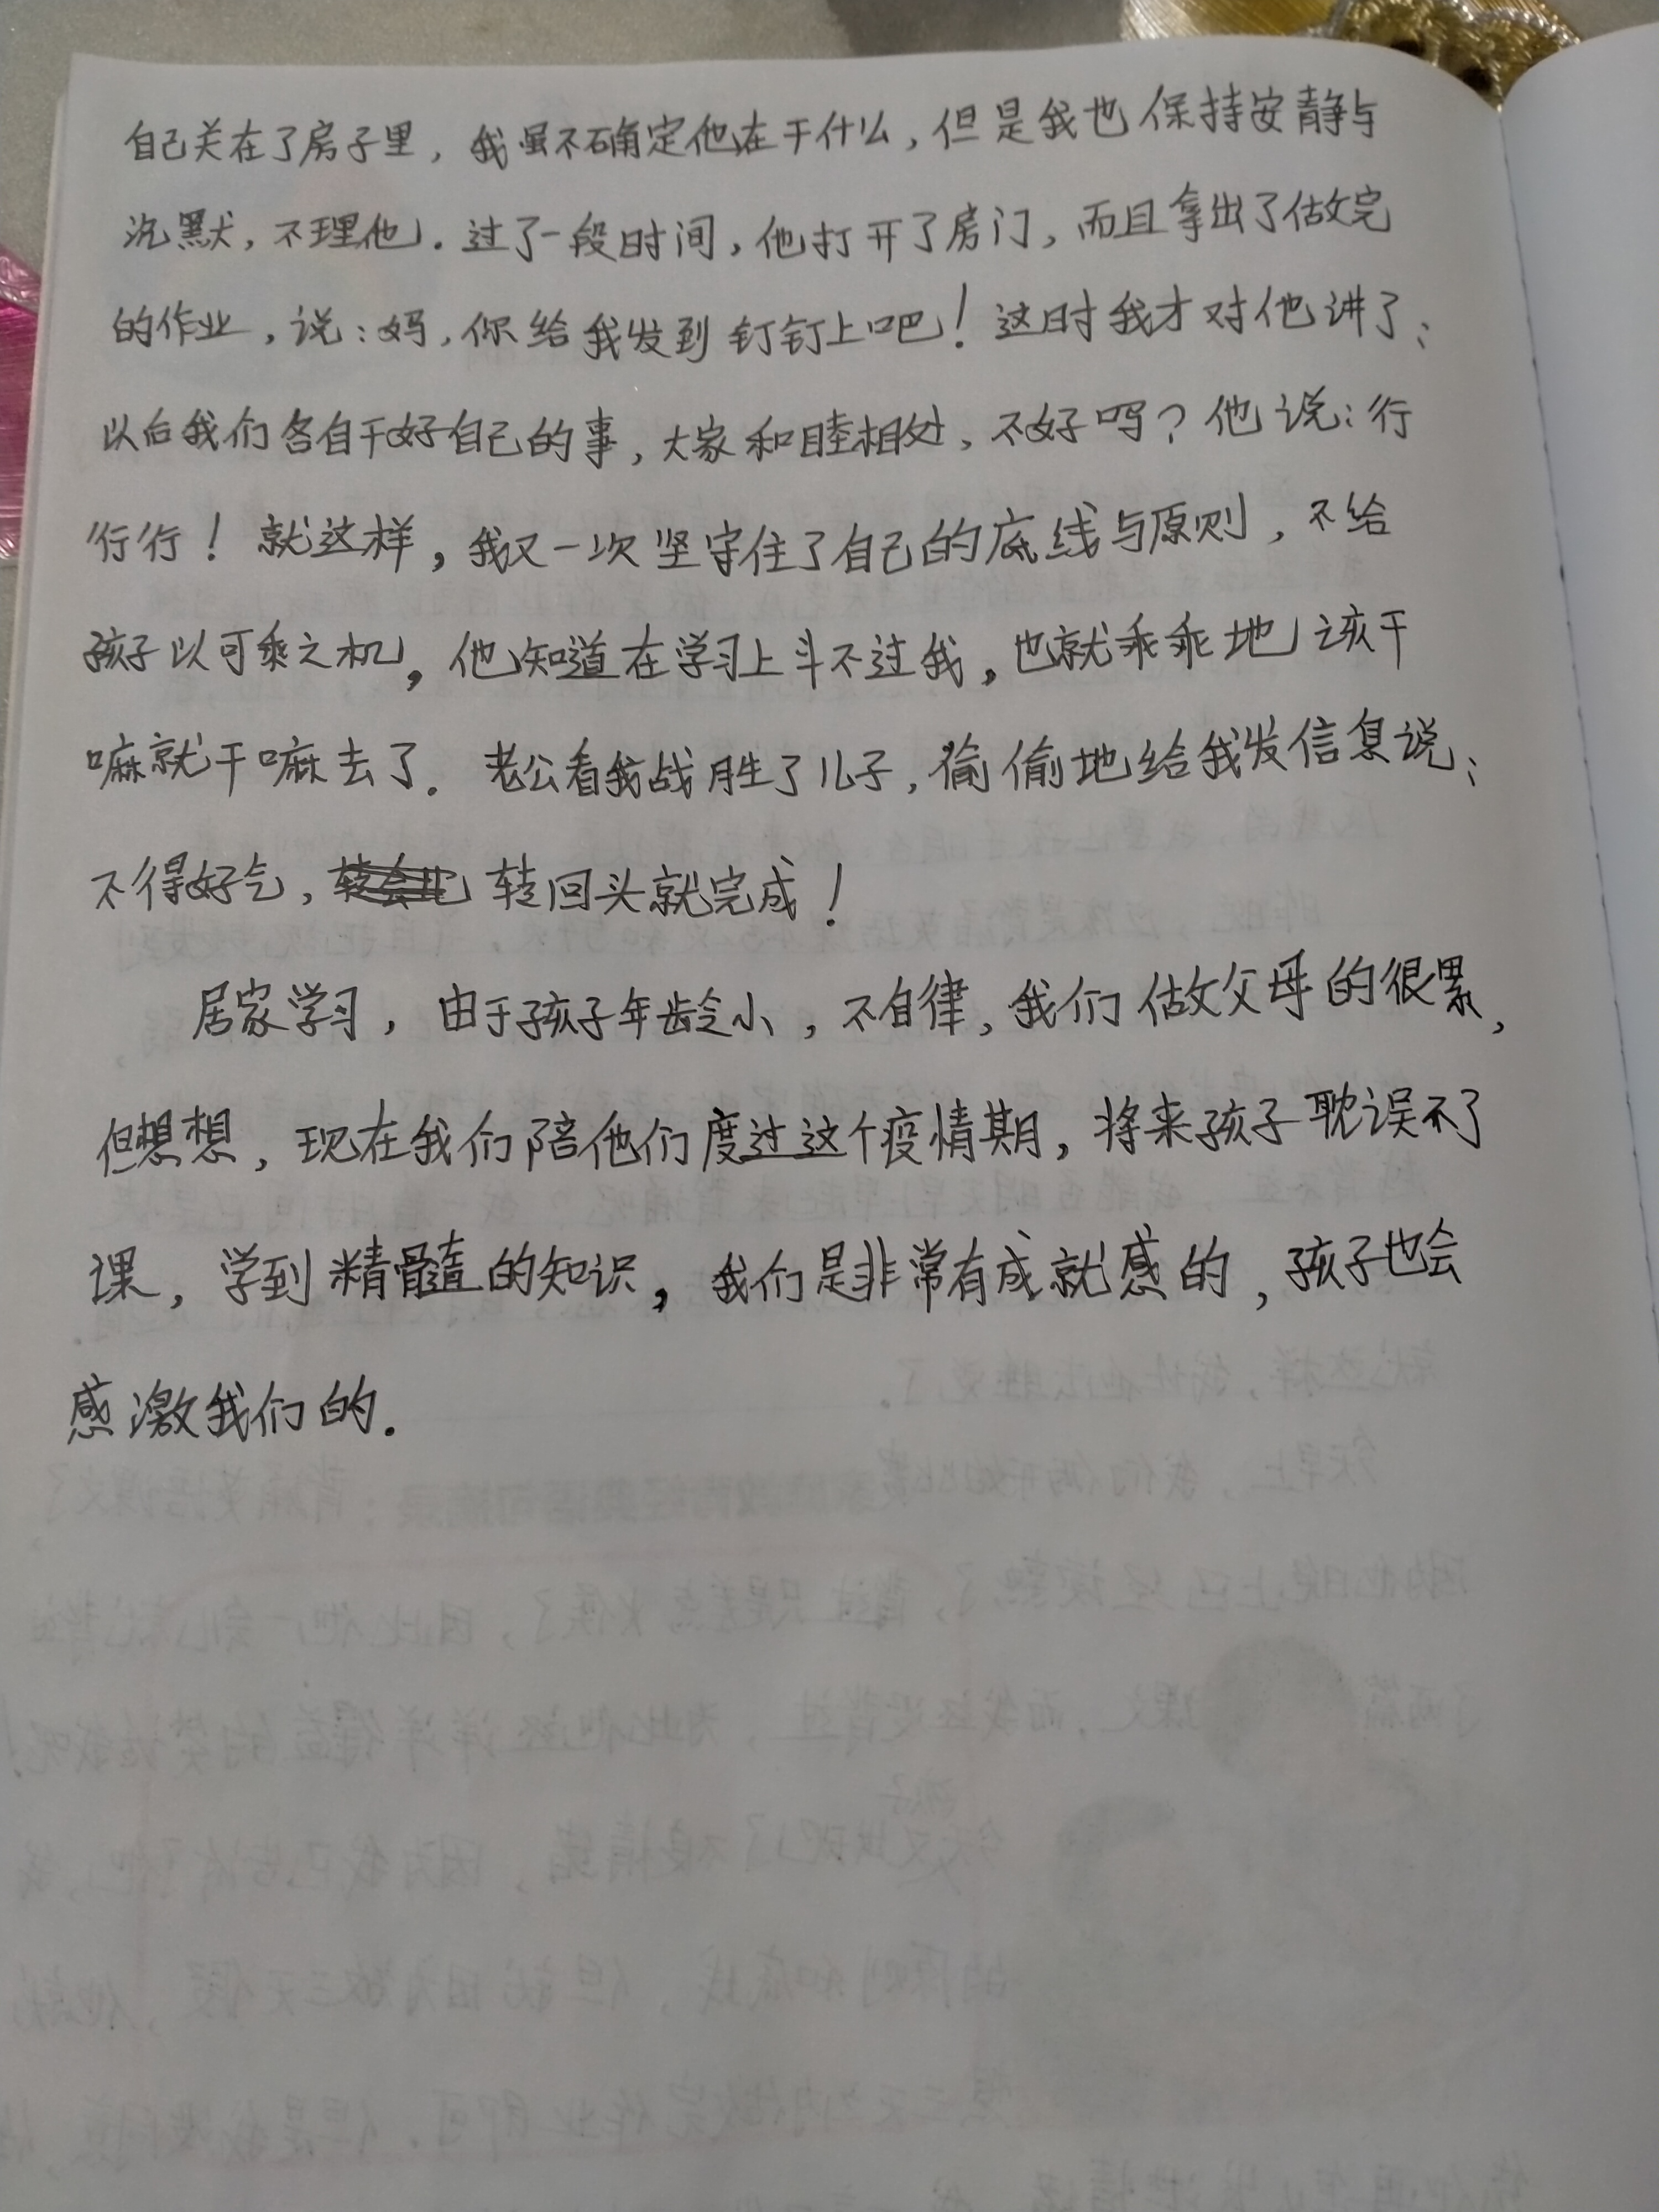 自己关在了房子里，我虽不确定他在干什么，但是我也保持安静与
沉默，不理他．过了一段时间，他打开了房门，而且拿出了做完
的作业，说：妈，你给我发到钉钉上吧！这时我才对他讲了：
以后我们各自干好自己的事，大家和睦相处，不好吗？他说：行
行行！就这样，我又一次坚守住了自己的底线与原则，不给
孩子以可乘之机，他知道在学习上斗不过我，也就乖乖地该干
嘛就干嘛去了．老公看我战胜了儿子，偷偷地给我发信息说：
不得好乞，转回头就完成！
居家学习，由于孩子年龄小，不自律，我们做父母的很累，
但想想，现在我们陪他们度过这个疫情期，将来孩子耽误不了
课，学到精髓的知识，我们是非常有成就感的，孩子也会
感激我们的．